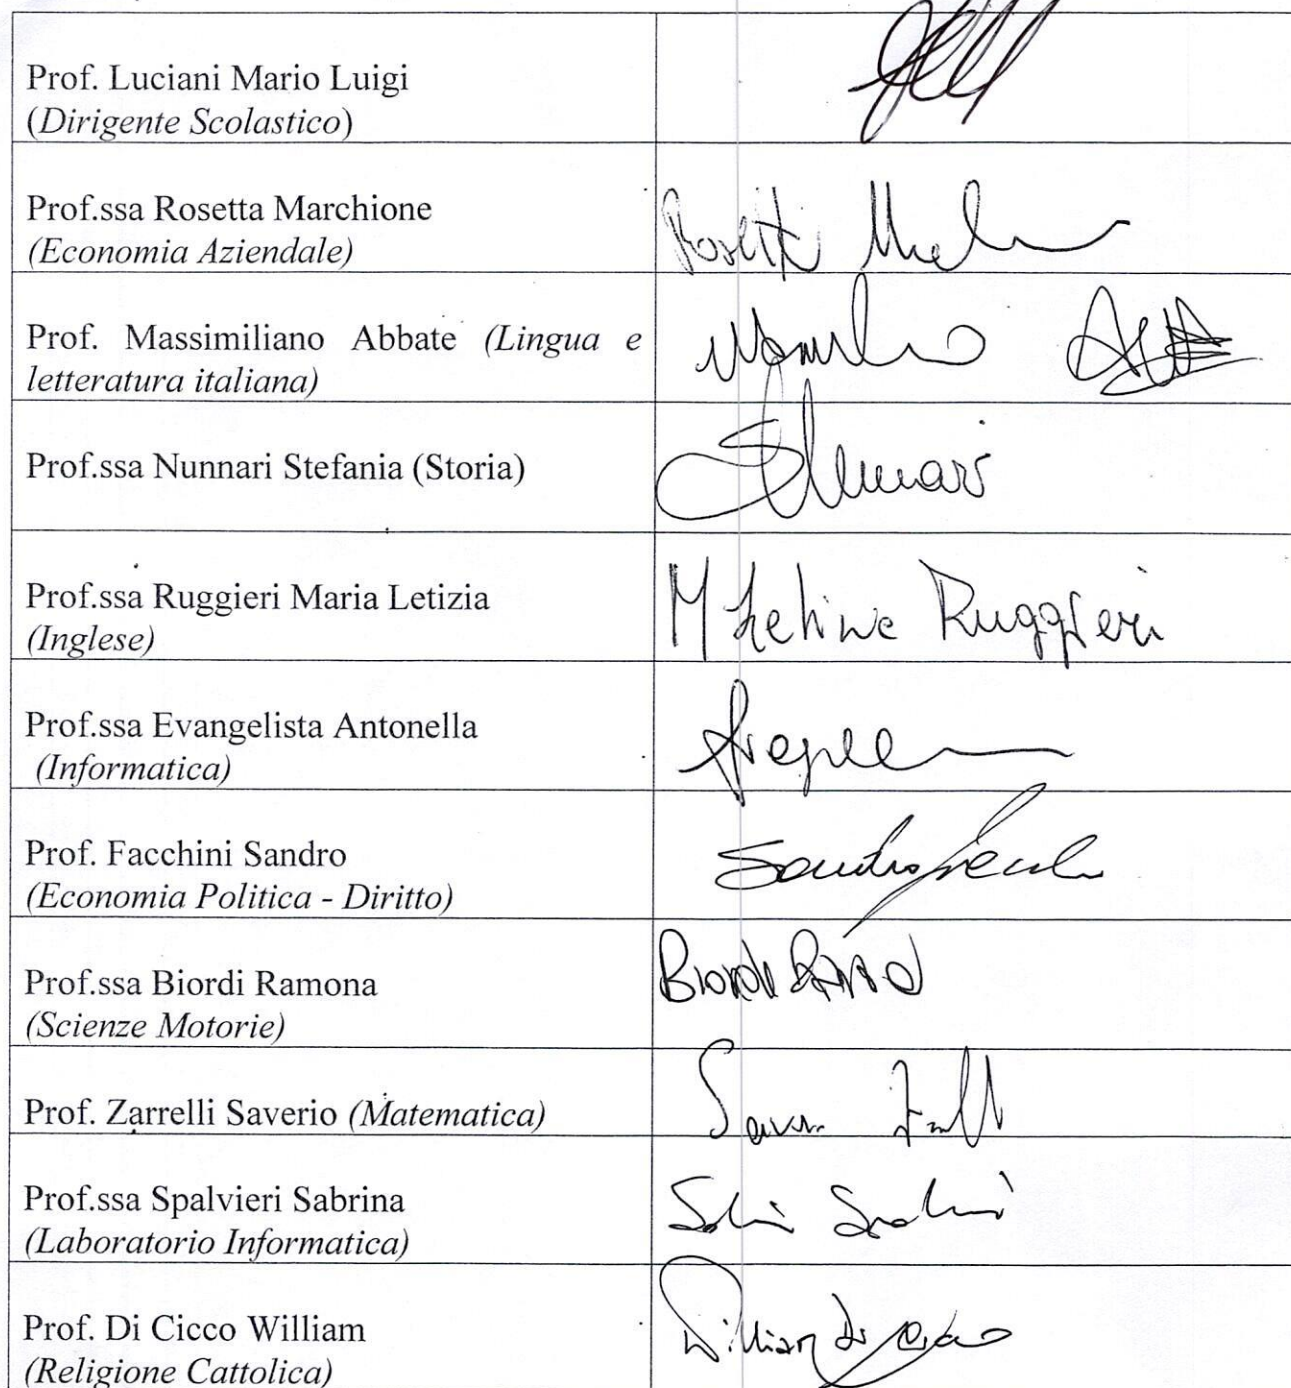 Prof. Luciani Mario Luigi
(Dirigente Scolastico)
Prof.ssa Rosetta Marchione
(Economia Aziendale)
Prof. Massimiliano Abbate (Lingua e
letteratura italiana)
Prof.ssa Nunnari Stefania (Storia)
SNunnari
Prof.ssa Ruggieri Maria Letizia
(Inglese)
M Letizia Ruggieri
Prof.ssa Evangelista Antonella
(Informatica)
Prof. Facchini Sandro
(Economia Politica - Diritto)
Sandro
Prof.ssa Biordi Ramona
(Scienze Motorie)
Biordi Ramona
Prof. Zarrelli Saverio (Matematica)
Prof.ssa Spalvieri Sabrina
(Laboratorio Informatica)
Prof. Di Cicco William
(Religione Cattolica)
William Di Cicco